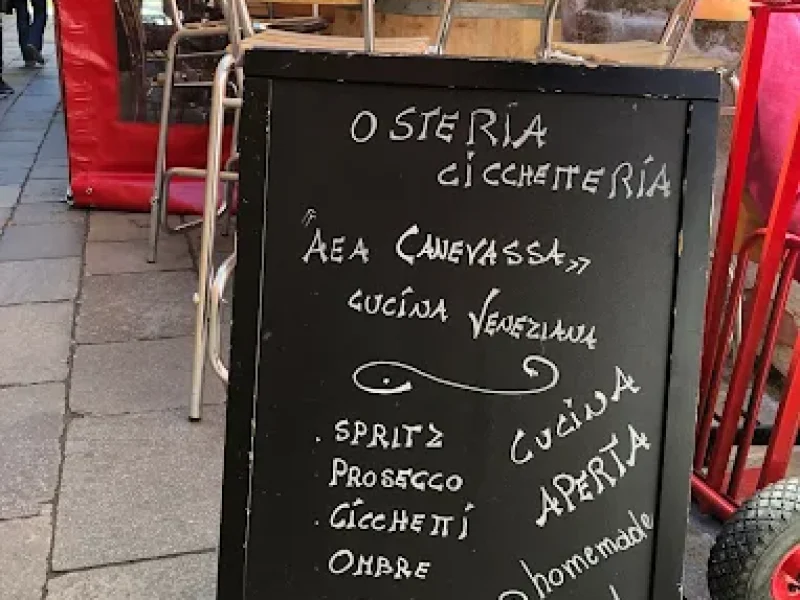 OSTERÍA
CICCHETTERÍA
"AEA CANEVASSA"
CUCÍNA VENEZIANA
. SPRITZ
PROSECCO
. CÍCCHETTÍ
. OMBRE
CUCÍNA
APERTA
homemade